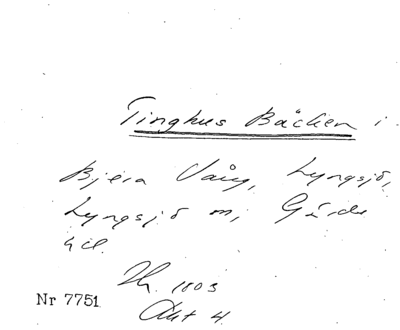 Tinghus Bäcken i
Bjera Vång, Lyngsjö,
Lyngsjö m, Gärds
hd.
1803
Akt 4.
Nr 7751